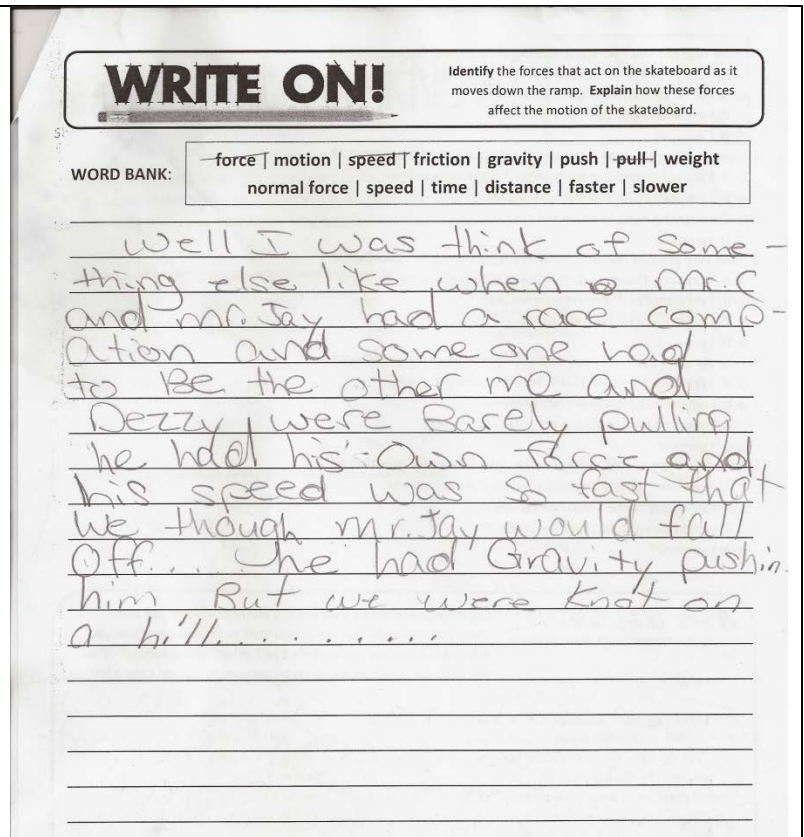 WRITE ON!
Identify the forces that act on the skateboard as it
moves down the ramp. Explain how these forces
affect the motion of the skateboard.
WORD BANK:
force | motion | speed | friction | gravity | push | pull | weight
normal force | speed | time | distance | faster | slower
Well I was think of some-
thing else like when Mr.C
and mr.Jay had a race comp-
ation and some one had
to Be the other me and
Dezzy were Barely pulling
he had his Own force and
his speed was so fast that
We though Mr.Jay would fall
Off... he had Gravity pushin
him But we were Knot on
a hill..........